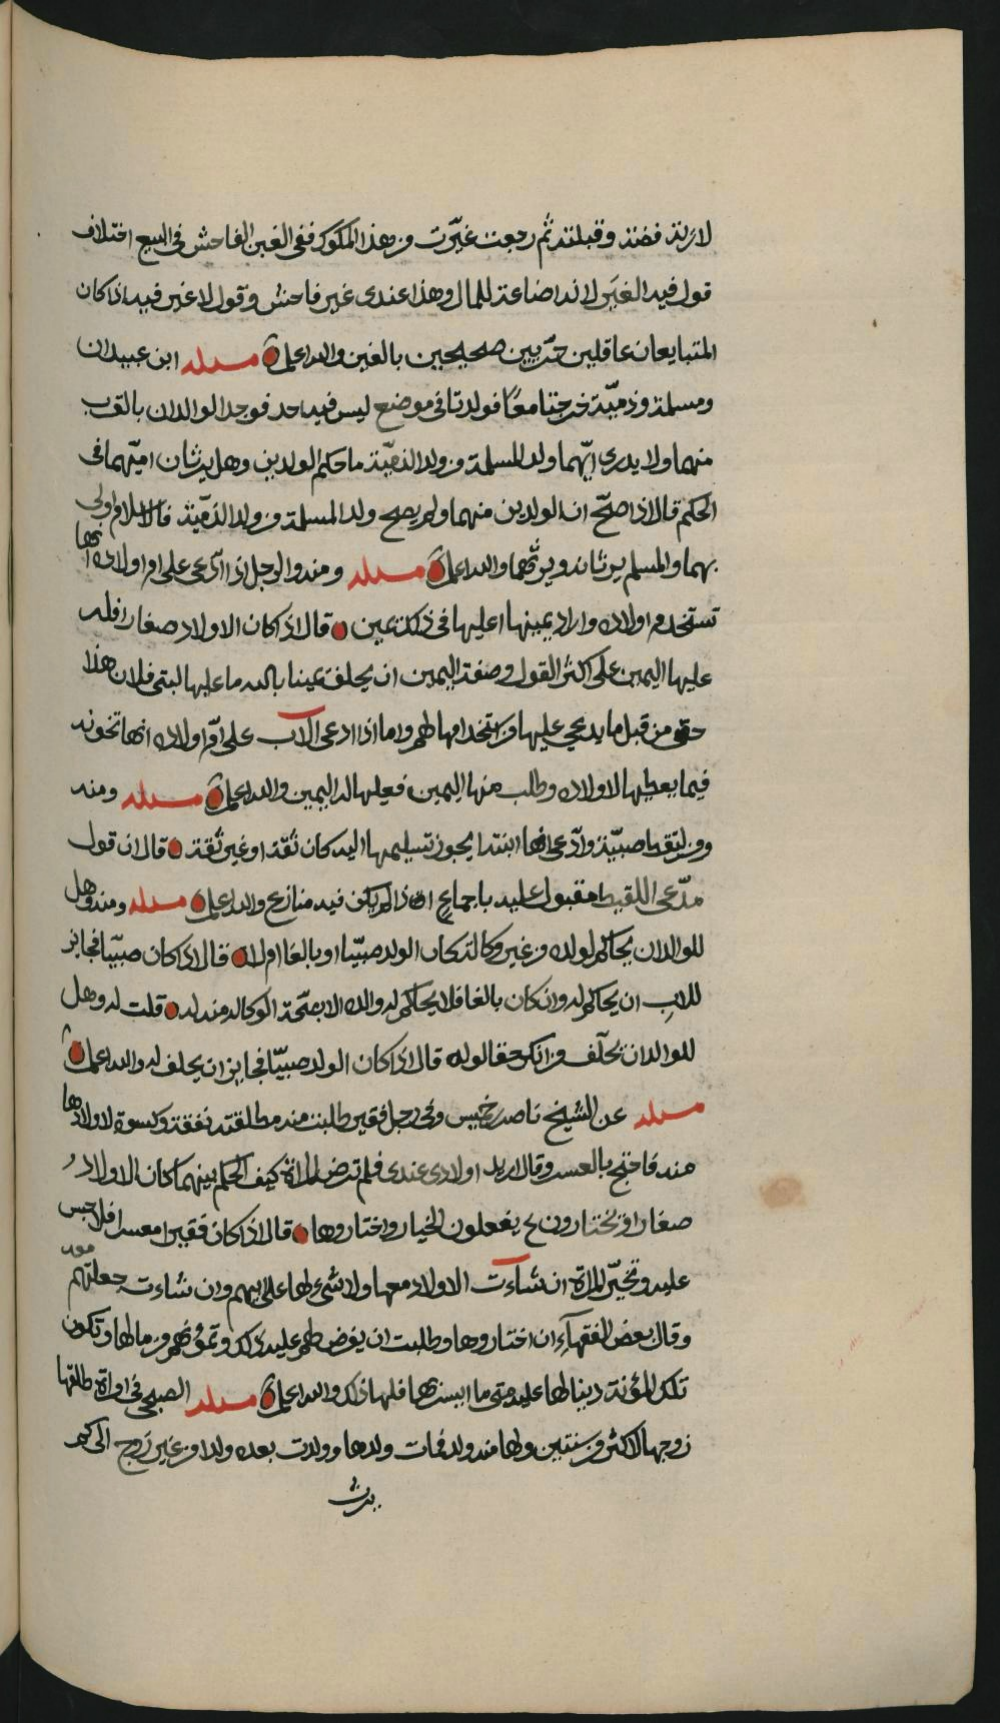 لارلة فضة وقبلته ثم رجعت غيرت من هذا المكوك ففي الغبن الفاحش في البيع اختلاف
قول فيه الغبن لانه اضاعة للمال وهذا عندي غبن فاحش وقول لا غبن فيه اذا كان
المتبايعان عاقلين حرّين صحيحين بالغين والله اعلم مسئلة ابن عبيدان
ومسلمة وذميّة خرجتا معًا فولدتا في موضع ليس فيه احد فوجد الوالدان بالقرب
منهما ولا يدرى ايّهما ولد المسلمة من ولد الذميّة ما حكم الولدين وهل يرثان اميّهما في
الحكم قال اذا صحّ ان الولدين منهما ولم يصح ولد المسلمة من ولد الذميّة فالاسلام اولى
بهما والمسلم يرثانه ويرثهما والله اعلم مسئلة ومنه والرجل اذا ادّعى على ام اولاده انها
تستخدم اولاده واراد يمينها اعليها في ذلك يمين قال اذا كان الاولاد صغارا فله
عليها اليمين على اكثر القول وصفة اليمين ان يحلف يمينا بالله ما عليها لبني فلان هذا
حق من قبل ما يدعي عليها من استخدامها لهم واما اذا ادعى الآب على امّ اولاده انها تخونه
فيما يعطيها لاولاده وطلب منها اليمين فعليها له اليمين والله اعلم مسئلة ومنه
ومن لتقط صبيّة وادّعى انها ابنته ايجوز تسليمها اليه كان ثقة او غير ثقة قال ان قول
مدّعي اللقيط مقبول عليه باجماع اذا لم يكن فيه منازع والله اعلم مسئلة ومنه وهل
للوالد ان يحاكم لولده من غير وكالة كان الولد صبيّا او بالغا ام لا قال اذا كان صبيّا فجايز
للابِ ان يحاكم له وان كان بالغا فلا يحاكم له والده الا بصحّة الوكالة منه له قلت له وهل
للوالد ان يحلّف من انكر حقا لولده قال اذا كان الولد صبيّا فجايز ان يحلف له والله اعلم
مسئلة عن الشيخ ناصر بن خميس وفي رجل فقير طلبت منه مطلقته نفقة وكسوة لاولادها
منه فاحتج بالعسر وقال اريد اولادي عندي فلم ترض المراة كيف الحكم بينهما كان الاولاد
صغارا او يختارون يفعلون الخيار واختاروها قال اذا كان فقيرا معسرا فلا حبس
عليه وتخيّر المراة ان شآءت الاولاد معها ولا شيء لها على ابيهم وان شاءت جعلتهم معه
وقال بعض الفقهآء ان اختاروها وطلبت ان يفرض لهم عليه ذلك وتمؤنهم من مالها وتكون
تلك المؤنة دينا لها عليه متى ما ايسر لها فلها ذلك والله اعلم مسئلة الصبحي في امراة طلقها
زوجها لاكثر من سنتين ولها منه ولد فمات ولدها وولدت بعده ولدا من غير زوج الى كم
يرث